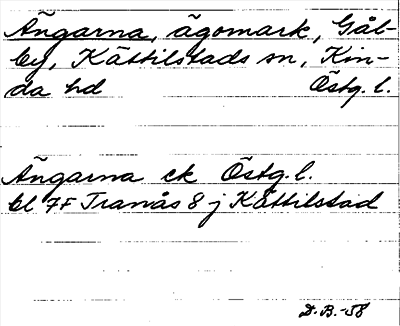 Ängarna, ägomark, Gål-
by, Kättilstads sn, Kin-
da hd Östg. l.
Ängarna ek Östg. l.
bl 7F Tranås 8 j Kättilstad
D. B. -58